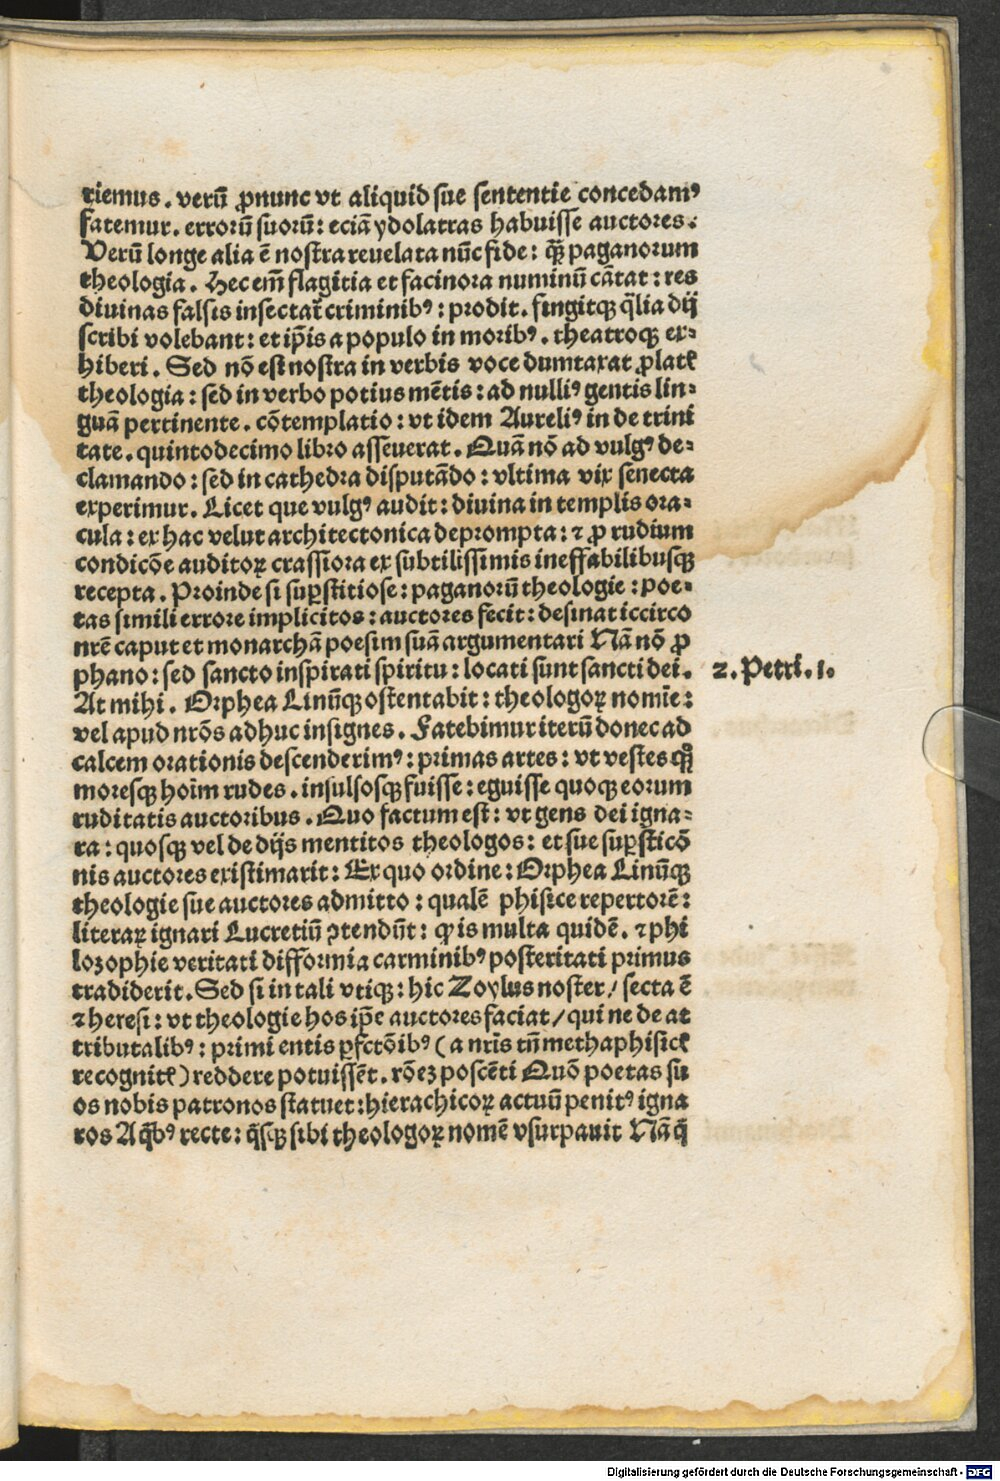 riemus. verū ꝓnunc vt aliquid sue sententie concedamꝰ
fatemur. errorū suorū: eciā ydolatras habuisse auctores.
Verū longe alia ē nostra reuelata nūc fide: ꝙ̄ paganorum
theologia. Hec em̄ flagitia et facinora numinū cātat: res
diuinas falsis insectat᷑ criminibꝰ: prodit. fingitqꝫ q̄lia dij
scribi volebant: et ip̄is a populo in moribꝰ. theatroqꝫ ex⸗
hiberi. Sed nō est nostra in verbis voce dumtaxat ꝓlatę
theologia: sed in verbo potius mētis: ad nulliꝰ gentis lin⸗
guā pertinente. cōtemplatio: vt idem Aureliꝰ in de trini
tate. quintodecimo libro asseuerat. Quā nō ad vulgꝰ de⸗
clamando: sed in cathedra disputādo: vltima vix senecta
experimur. Licet que vulgꝰ audit: diuina in templis ora⸗
cula: ex hac velut architectonica deprompta: ⁊ ꝓ rudium
condicōe auditoꝝ crassiora ex subtilissimis ineffabilibusqꝫ
recepta. Proinde si suꝑstitiose: paganorū theologie: poe⸗
tas simili errore implicitos: auctores fecit: desinat iccirco
nr̄e caput et monarchā poesim suā argumentari Nā nō ꝓ
phano: sed sancto inspirati spiritu: locati sunt sancti dei.
2. Petri. 1.
At mihi. Orphea Linūqꝫ ostentabit: theologoꝝ nomīe:
vel apud nr̄os adhuc insignes. Fatebimur iterū donec ad
calcem orationis descenderimꝰ: primas artes: vt vestes qꝫ
moresqꝫ hoīm rudes. insulsosqꝫ fuisse: eguisse quoqꝫ eorum
ruditatis auctoribus. Quo factum est: vt gens dei igna⸗
ra: quosqꝫ vel de dijs mentitos theologos: et sue suꝑsticō
nis auctores existimarit: Ex quo ordine: Orphea Linūqꝫ
theologie sue auctores admitto: qualē phisice repertorē:
literaꝝ ignari Lucretiū ꝯtendūt: ꝙ is multa quidē. ⁊ phi
lozophie veritati difformia carminibꝰ posteritati primus
tradiderit. Sed si in tali vtiqꝫ: hic Zoylus noster / secta ē
⁊ heresi: vt theologie hos ip̄e auctores faciat / qui ne de at
tributalibꝰ: primi entis ꝑfctōibꝰ (a nr̄is tn̄ methaphisicę
recognitę) reddere potuissēt. rōeꝫ poscēti Quō poetas su
os nobis patronos statuet: hierachicoꝝ actuū penitꝰ igna
ros A q̄bꝰ recte: q̄sqꝫ sibi theologoꝝ nomē vsurpauit Nā q̄
Digitalisierung gefördert durch die Deutsche Forschungsgemeinschaft - DFG